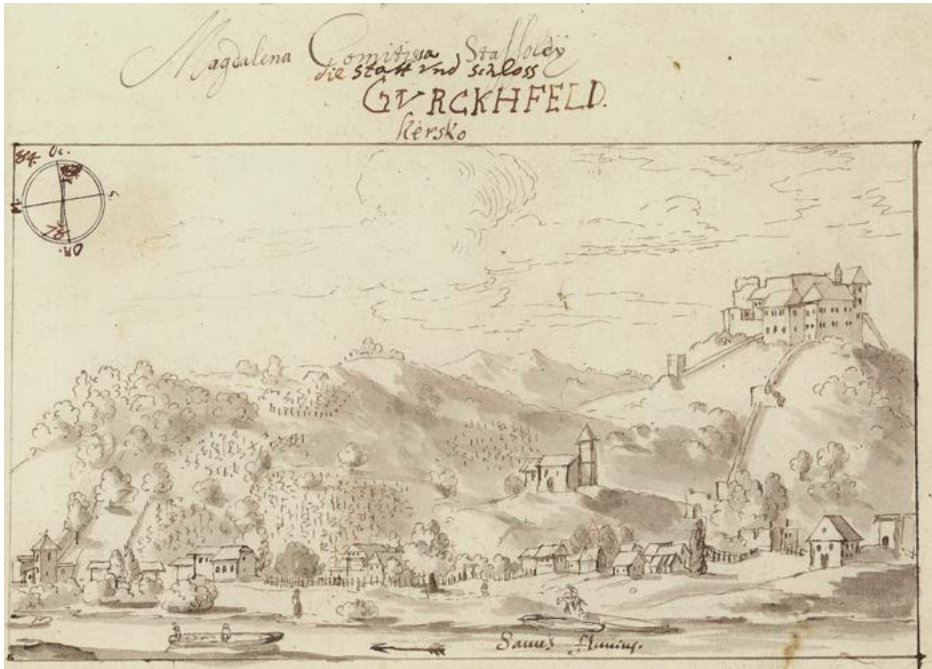 Magdalena Comitissa
die statt vnd schloss
GVRCKHFELD.
Kérsko
84. Oc.
M. S
78
OR.
Sauus fluuius.